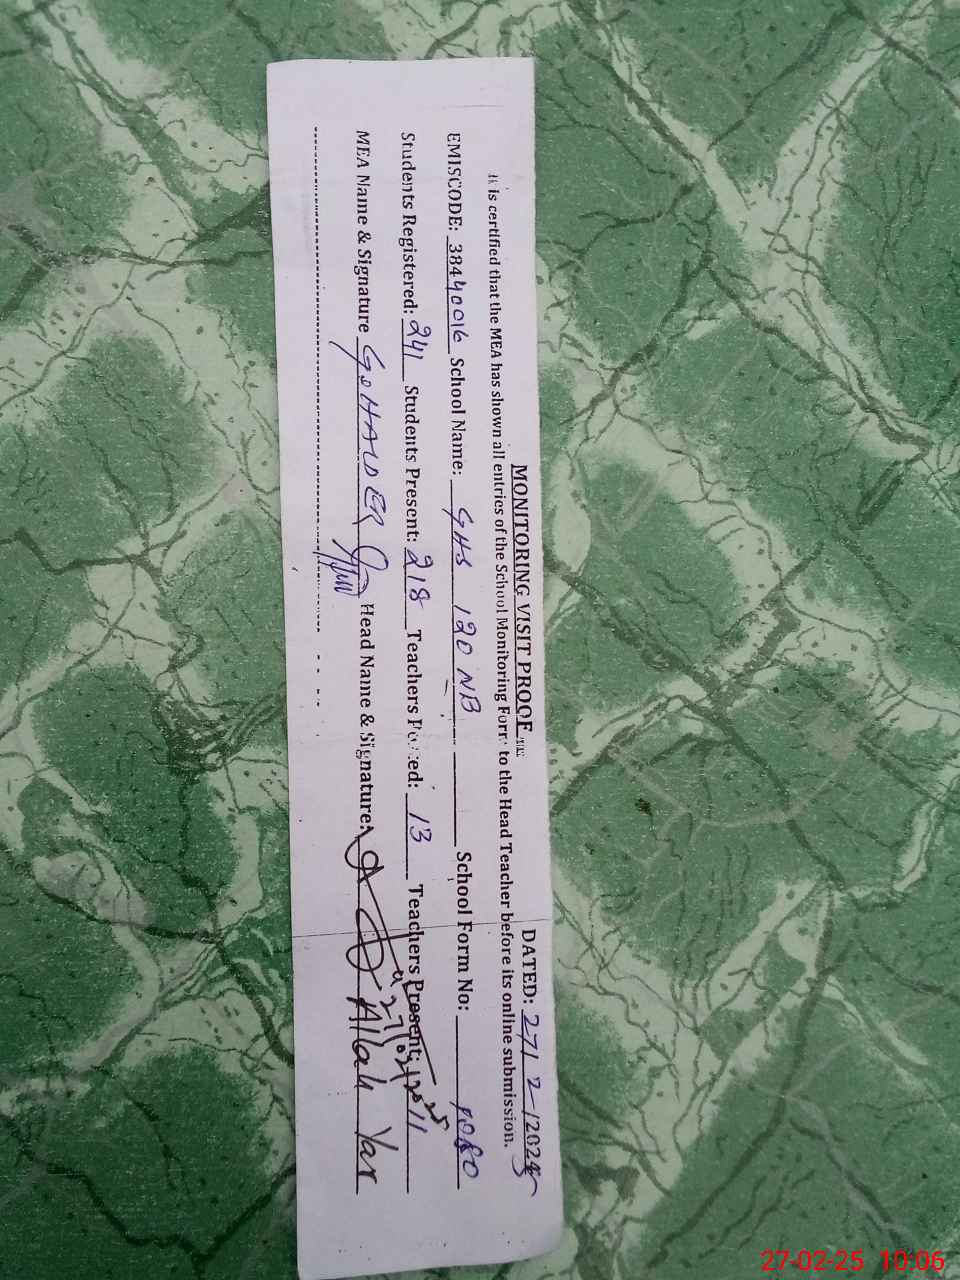 MONITORING VISIT PROOF
DATED: 27/2/2025
It is certified that the MEA has shown all entries of the School Monitoring Form to the Head Teacher before its online submission.
EMISCODE: 38440016 School Name: GHS 120 NB School Form No: 1080
Students Registered: 241 Students Present: 218 Teachers Posted: 13 Teachers Present: 11
27/02/2025
MEA Name & Signature G. HAIDER Head Name & Signature: Allah Yar
27-02-25 10:06